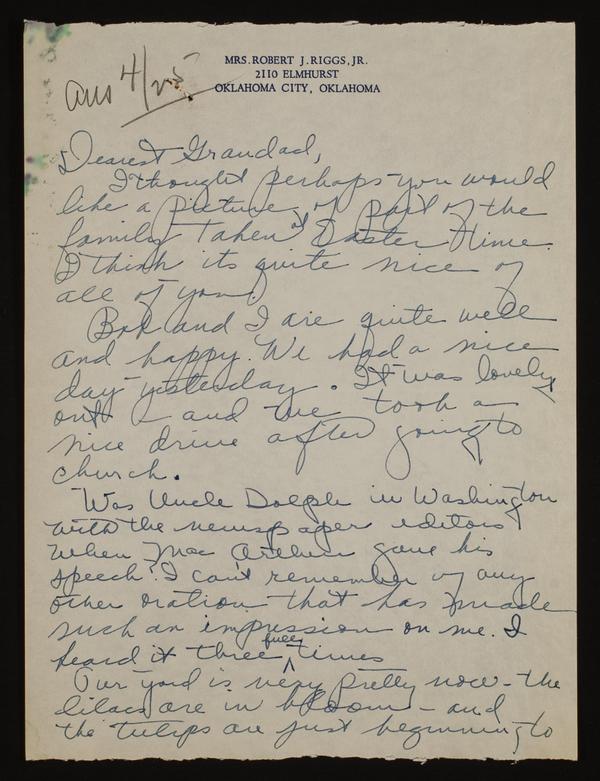 MRS. ROBERT J. RIGGS, JR.
2110 ELMHURST
OKLAHOMA CITY, OKLAHOMA
ans 4/25
Dearest Grandad,
I thought perhaps you would
like a picture of part of the
family taken at Easter time.
I think its quite nice of
all of you.
Bob and I are quite well
and happy. We had a nice
day yesterday. It was lovely
out - and we took a
nice drive after going to
church.
Was Uncle Dolph in Washington
with the newspaper editors
when Mac Arthur gave his
speech? I can't remember of any
other oration that has made
such an impression on me. I
heard it three full times
Our yard is very pretty now - the
lilacs are in bloom - and
the tulips are just beginning to